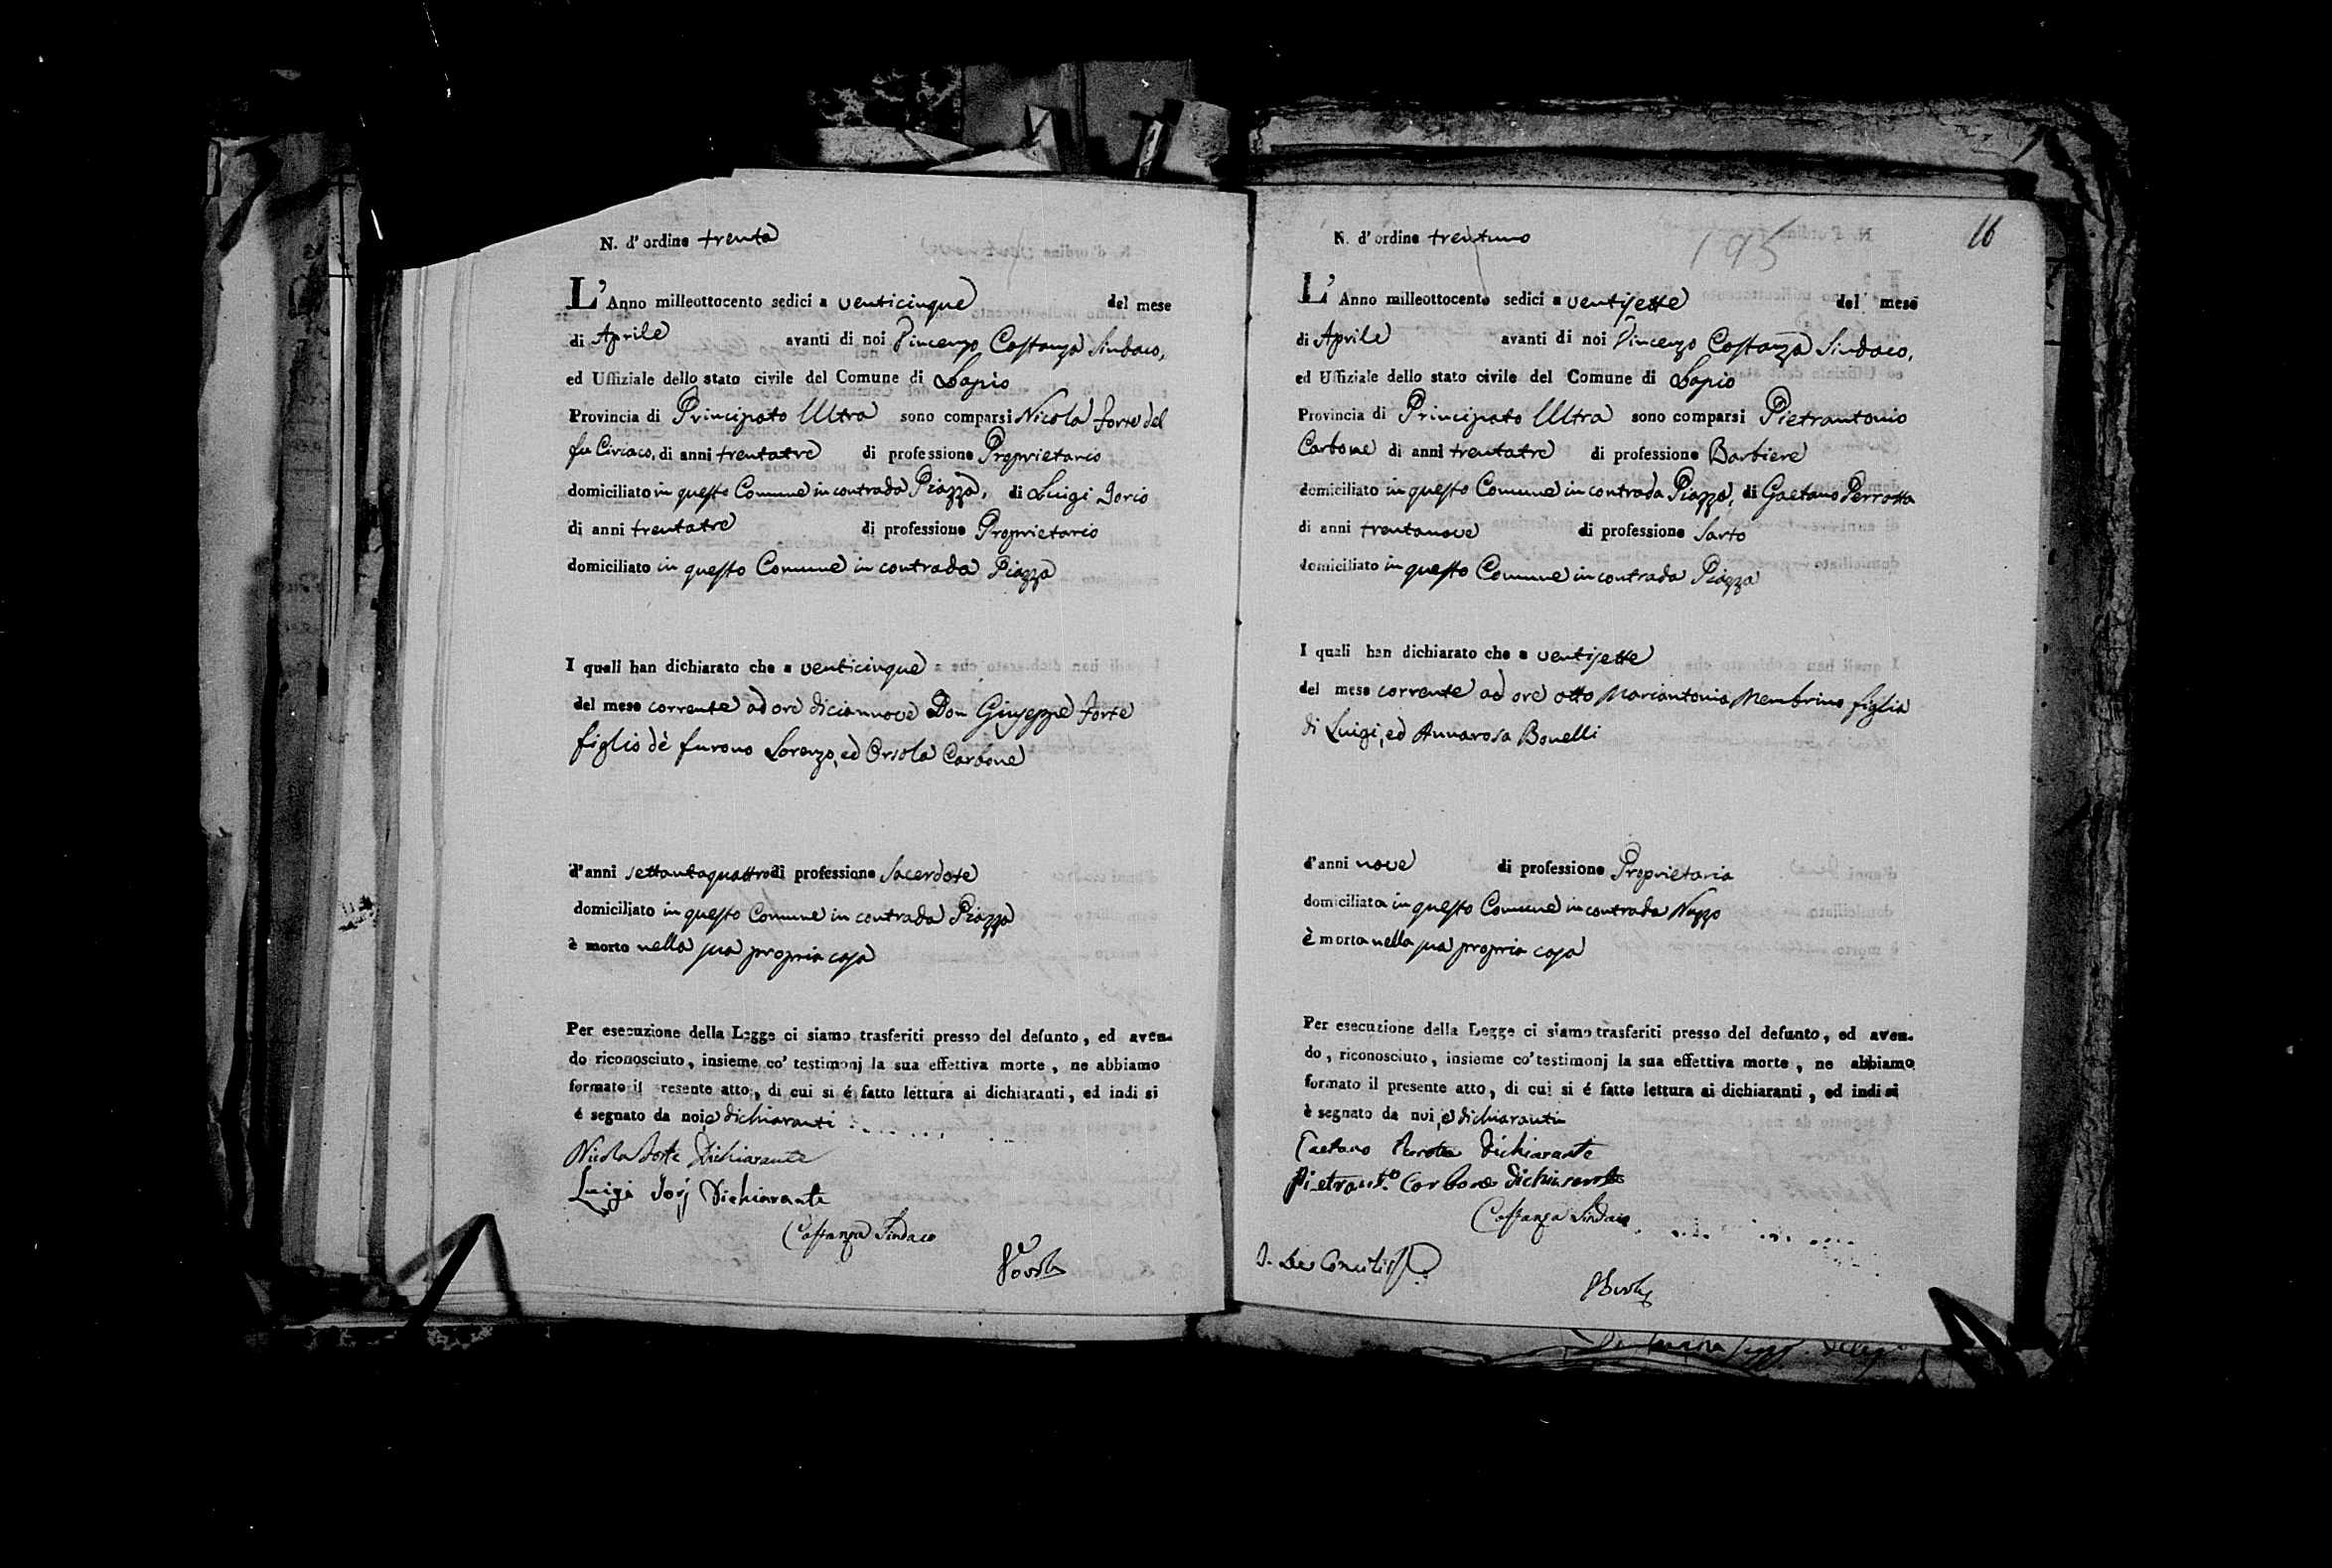 N. d'ordine trenta
L'Anno milleottocento sedici a venticinque del mese
di Aprile avanti di noi Vincenzo Costanza Sindaco,
ed Uffiziale dello stato civile del Comune di Lapio
Provincia di Principato Ultra sono comparsi Nicola Forte del
fu Ciriaco, di anni trentatre di professione Proprietario
domiciliato in questo Comune in contrada Piazza, di Luigi Iorio
di anni trentatre di professione Proprietario
domiciliato in questo Comune in contrada Piazza
I quali han dichiarato che a venticinque
del mese corrente ad ore diciannove Don Giuseppe Forte
figlio dè furono Lorenzo, ed Orsola Carbone
d'anni settantaquattro di professione Sacerdote
domiciliato in questo Comune in contrada Piazza
è morto nella sua propria casa
Per esecuzione della Legge ci siamo trasferiti presso del defunto, ed aven-
do riconosciuto, insieme co' testimonj la sua effettiva morte, ne abbiamo
formato il resente atto, di cui si é fatto lettura ai dichiaranti, ed indi si
é segnato da noi, e dichiaranti
Nicola Forte Dichiarante
Luigi Iorj Dichiarante
Costanza Sindaco
16
195
N. d'ordine trentuno
L'Anno milleottocento sedici a ventisette del mese
di Aprile avanti di noi Vincenzo Costanza Sindaco,
ed Uffiziale dello stato civile del Comune di Lapio
Provincia di Principato Ultra sono comparsi Pietrantonio
Carbone di anni trentatre di professione Barbiere
domiciliato in questo Comune in contrada Piazza, di Gaetano Perrotta
di anni trentanove di professione Sarto
domiciliato in questo Comune in contrada Piazza
I quali han dichiarato che a ventisette
del mese corrente ad ore otto Mariantonia Membrino figlia
di Luigi, ed Annarosa Bonelli
d'anni nove di professione Proprietaria
domiciliata in questo Comune in contrada Nazzo
è morta nella sua propria casa
Per esecuzione della Legge ci siamo trasferiti presso del defunto, ed aven-
do, riconosciuto, insieme co' testimonj la sua effettiva morte, ne abbiamo
formato il presente atto, di cui si é fatto lettura ai dichiaranti, ed indi si
è segnato da noi, e dichiaranti
Gaetano Perrotta Dichiarante
Pietrant.o Carbone Dichiarante
Costanza Sindaco